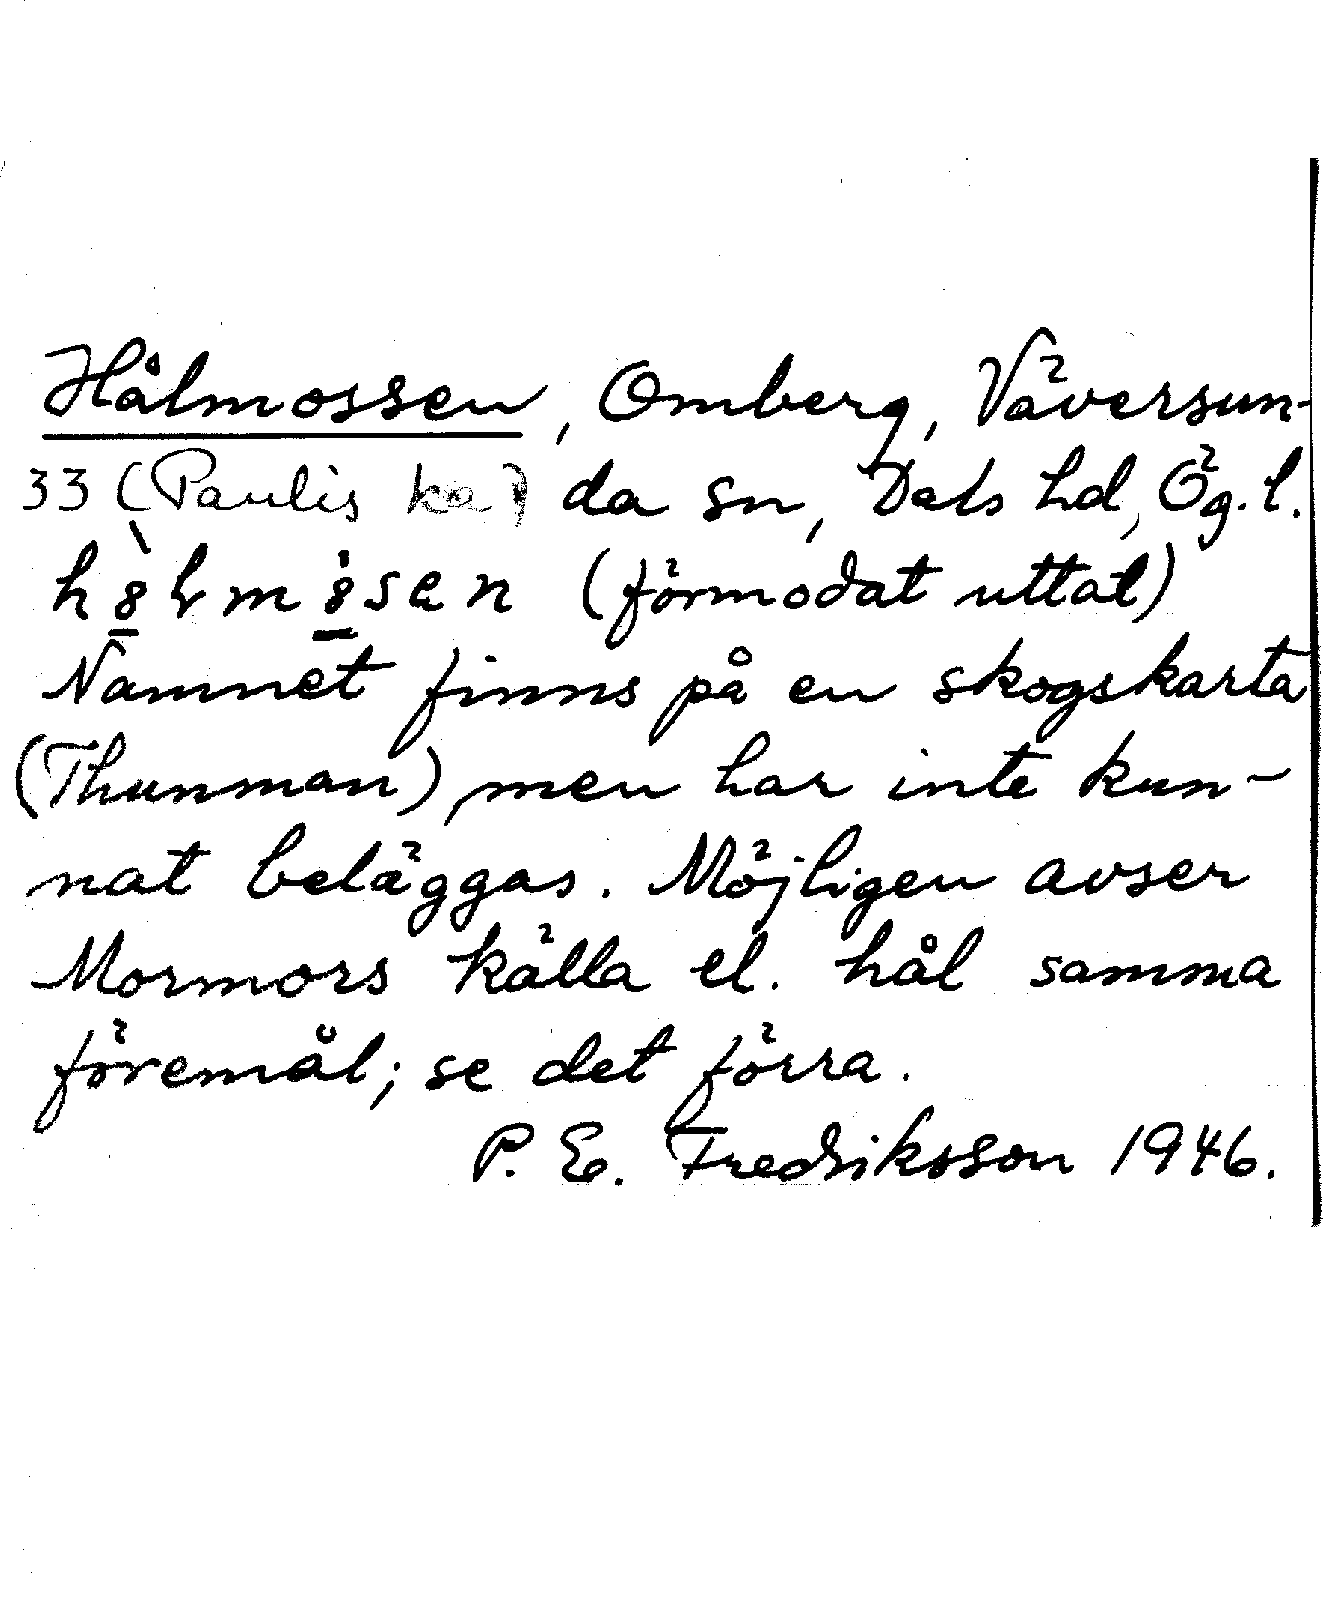 Hålmossen, Omberg, Väversun-
33 (Paulis ka) da sn, Dals hd, Ög. l.
(förmodat uttal)
Namnet finns på en skogskarta
(Thunman), men har inte kun-
nat beläggas. Möjligen avser
Mormors källa el. hål samma
föremål; se det förra.
P. E. Fredriksson 1946.